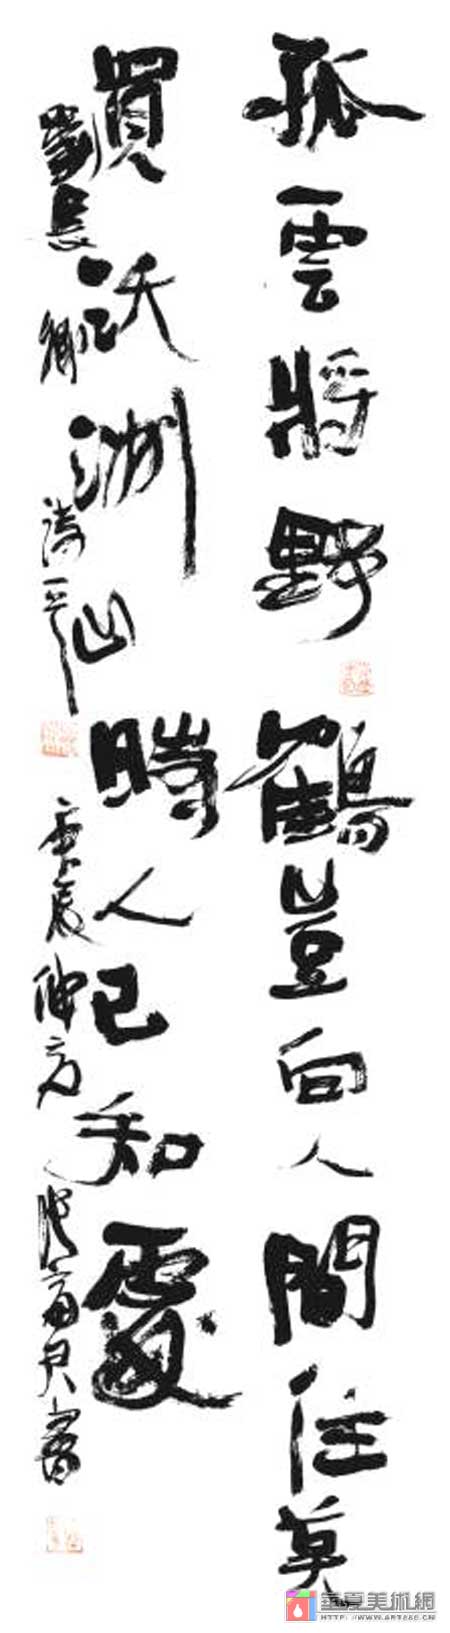 孤雲將野鶴豈向人間住莫
買沃洲山時人已知處
劉長卿詩一 庚辰仲 書
華夏美術網